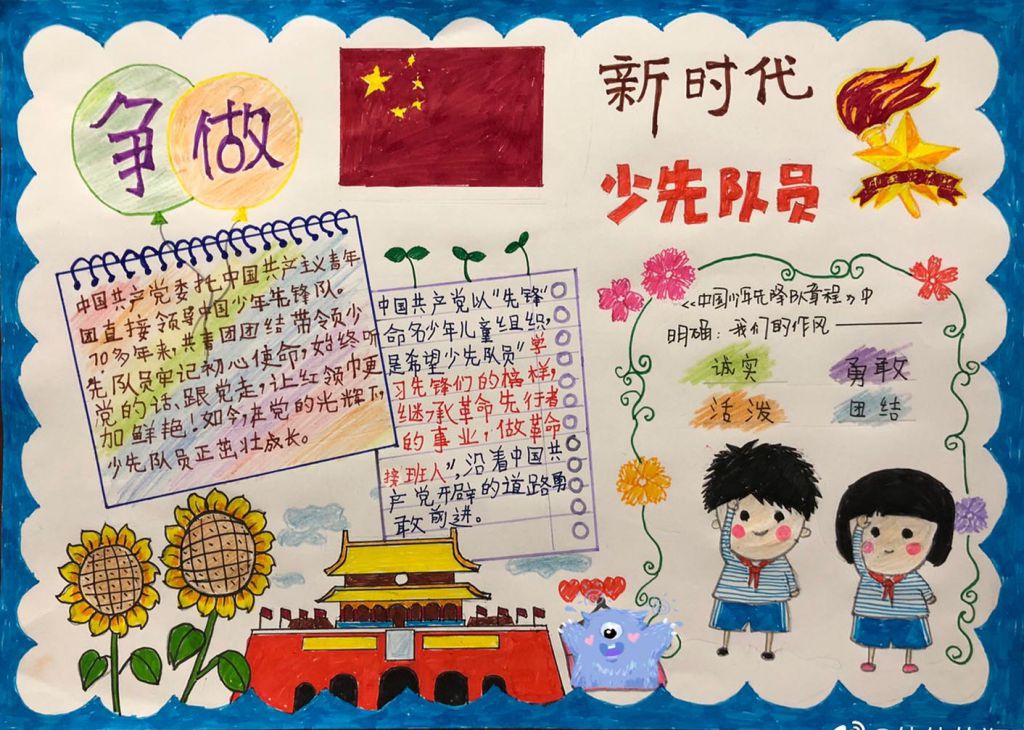 争做
新时代
少先队员
中国少先队
中国共产党委托中国共产主义青年
团直接领导中国少年先锋队。
70多年来,共青团团结带领少
先队员牢记初心使命,始终听
党的话、跟党走,让红领巾更
加鲜艳!如今,在党的光辉下,
少先队员正茁壮成长。
中国共产党以“先锋”
命名少年儿童组织,
是希望少先队员“学
习先锋们的榜样,
继承革命先行者
的事业,做革命
接班人”,沿着中国共
产党开辟的道路勇
敢前进。
《中国少年先锋队章程》中
明确:我们的作风——
诚实
勇敢
活泼
团结